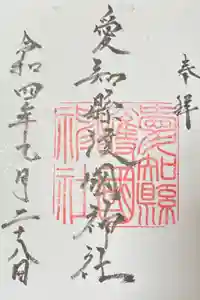 奉拝
愛知縣護國神社
愛知縣
護國
神社
令和四年七月二十八日